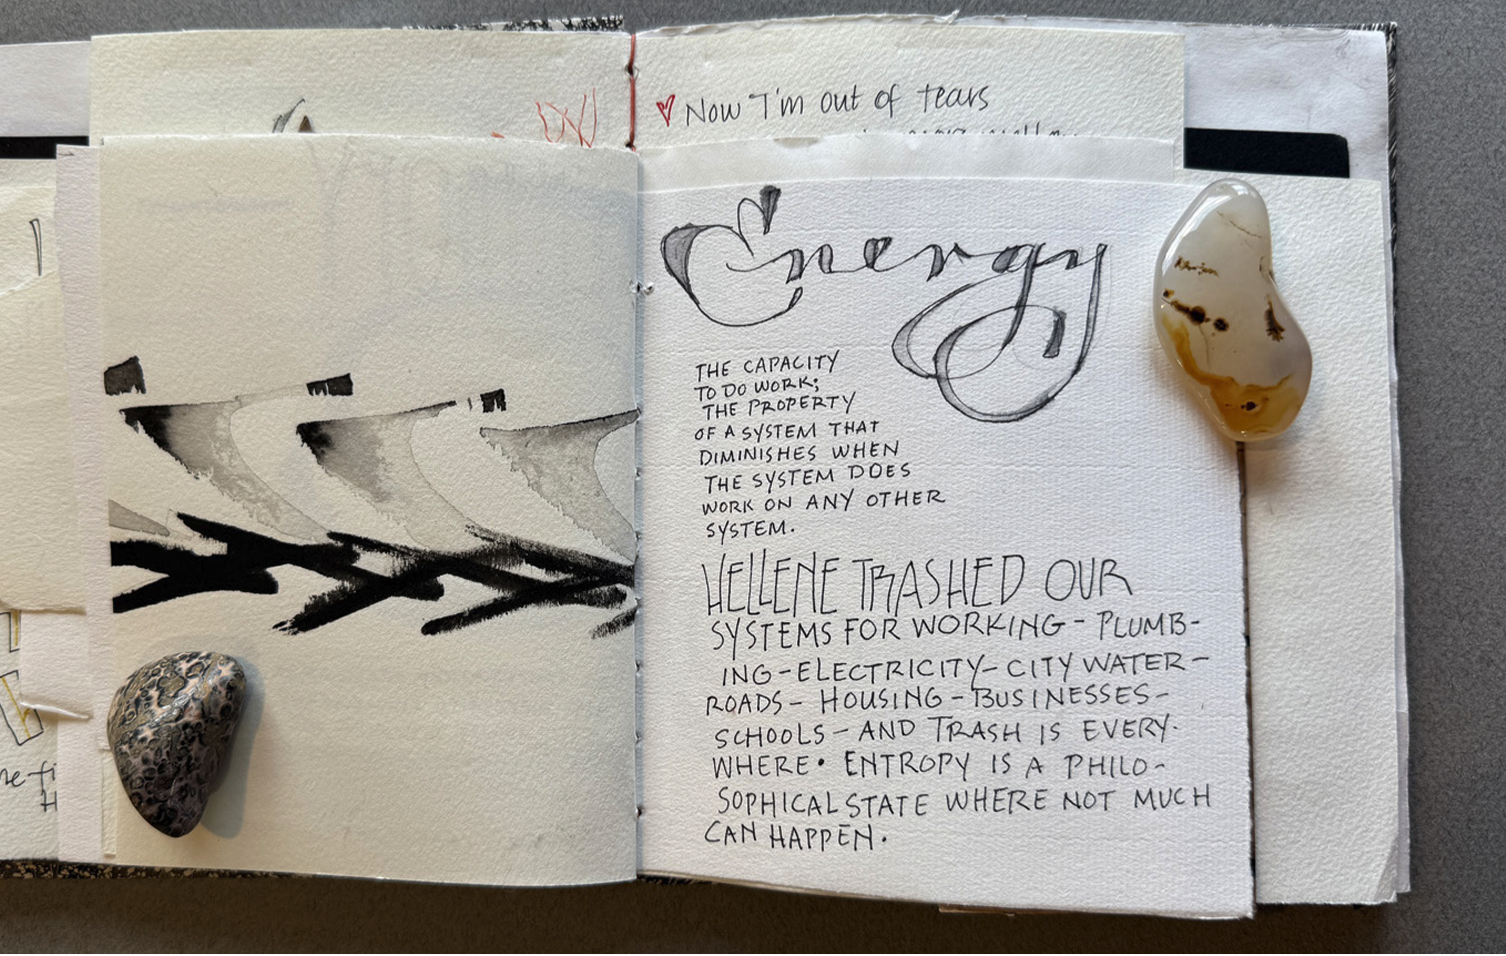 Now I'm out of tears
Energy
THE CAPACITY
TO DO WORK;
THE PROPERTY
OF A SYSTEM THAT
DIMINISHES WHEN
THE SYSTEM DOES
WORK ON ANY OTHER
SYSTEM.
HELLENE TRASHED OUR
SYSTEMS FOR WORKING - PLUMB-
ING - ELECTRICITY - CITY WATER -
ROADS - HOUSING - BUSINESSES -
SCHOOLS - AND TRASH IS EVERY-
WHERE • ENTROPY IS A PHILO-
SOPHICAL STATE WHERE NOT MUCH
CAN HAPPEN.